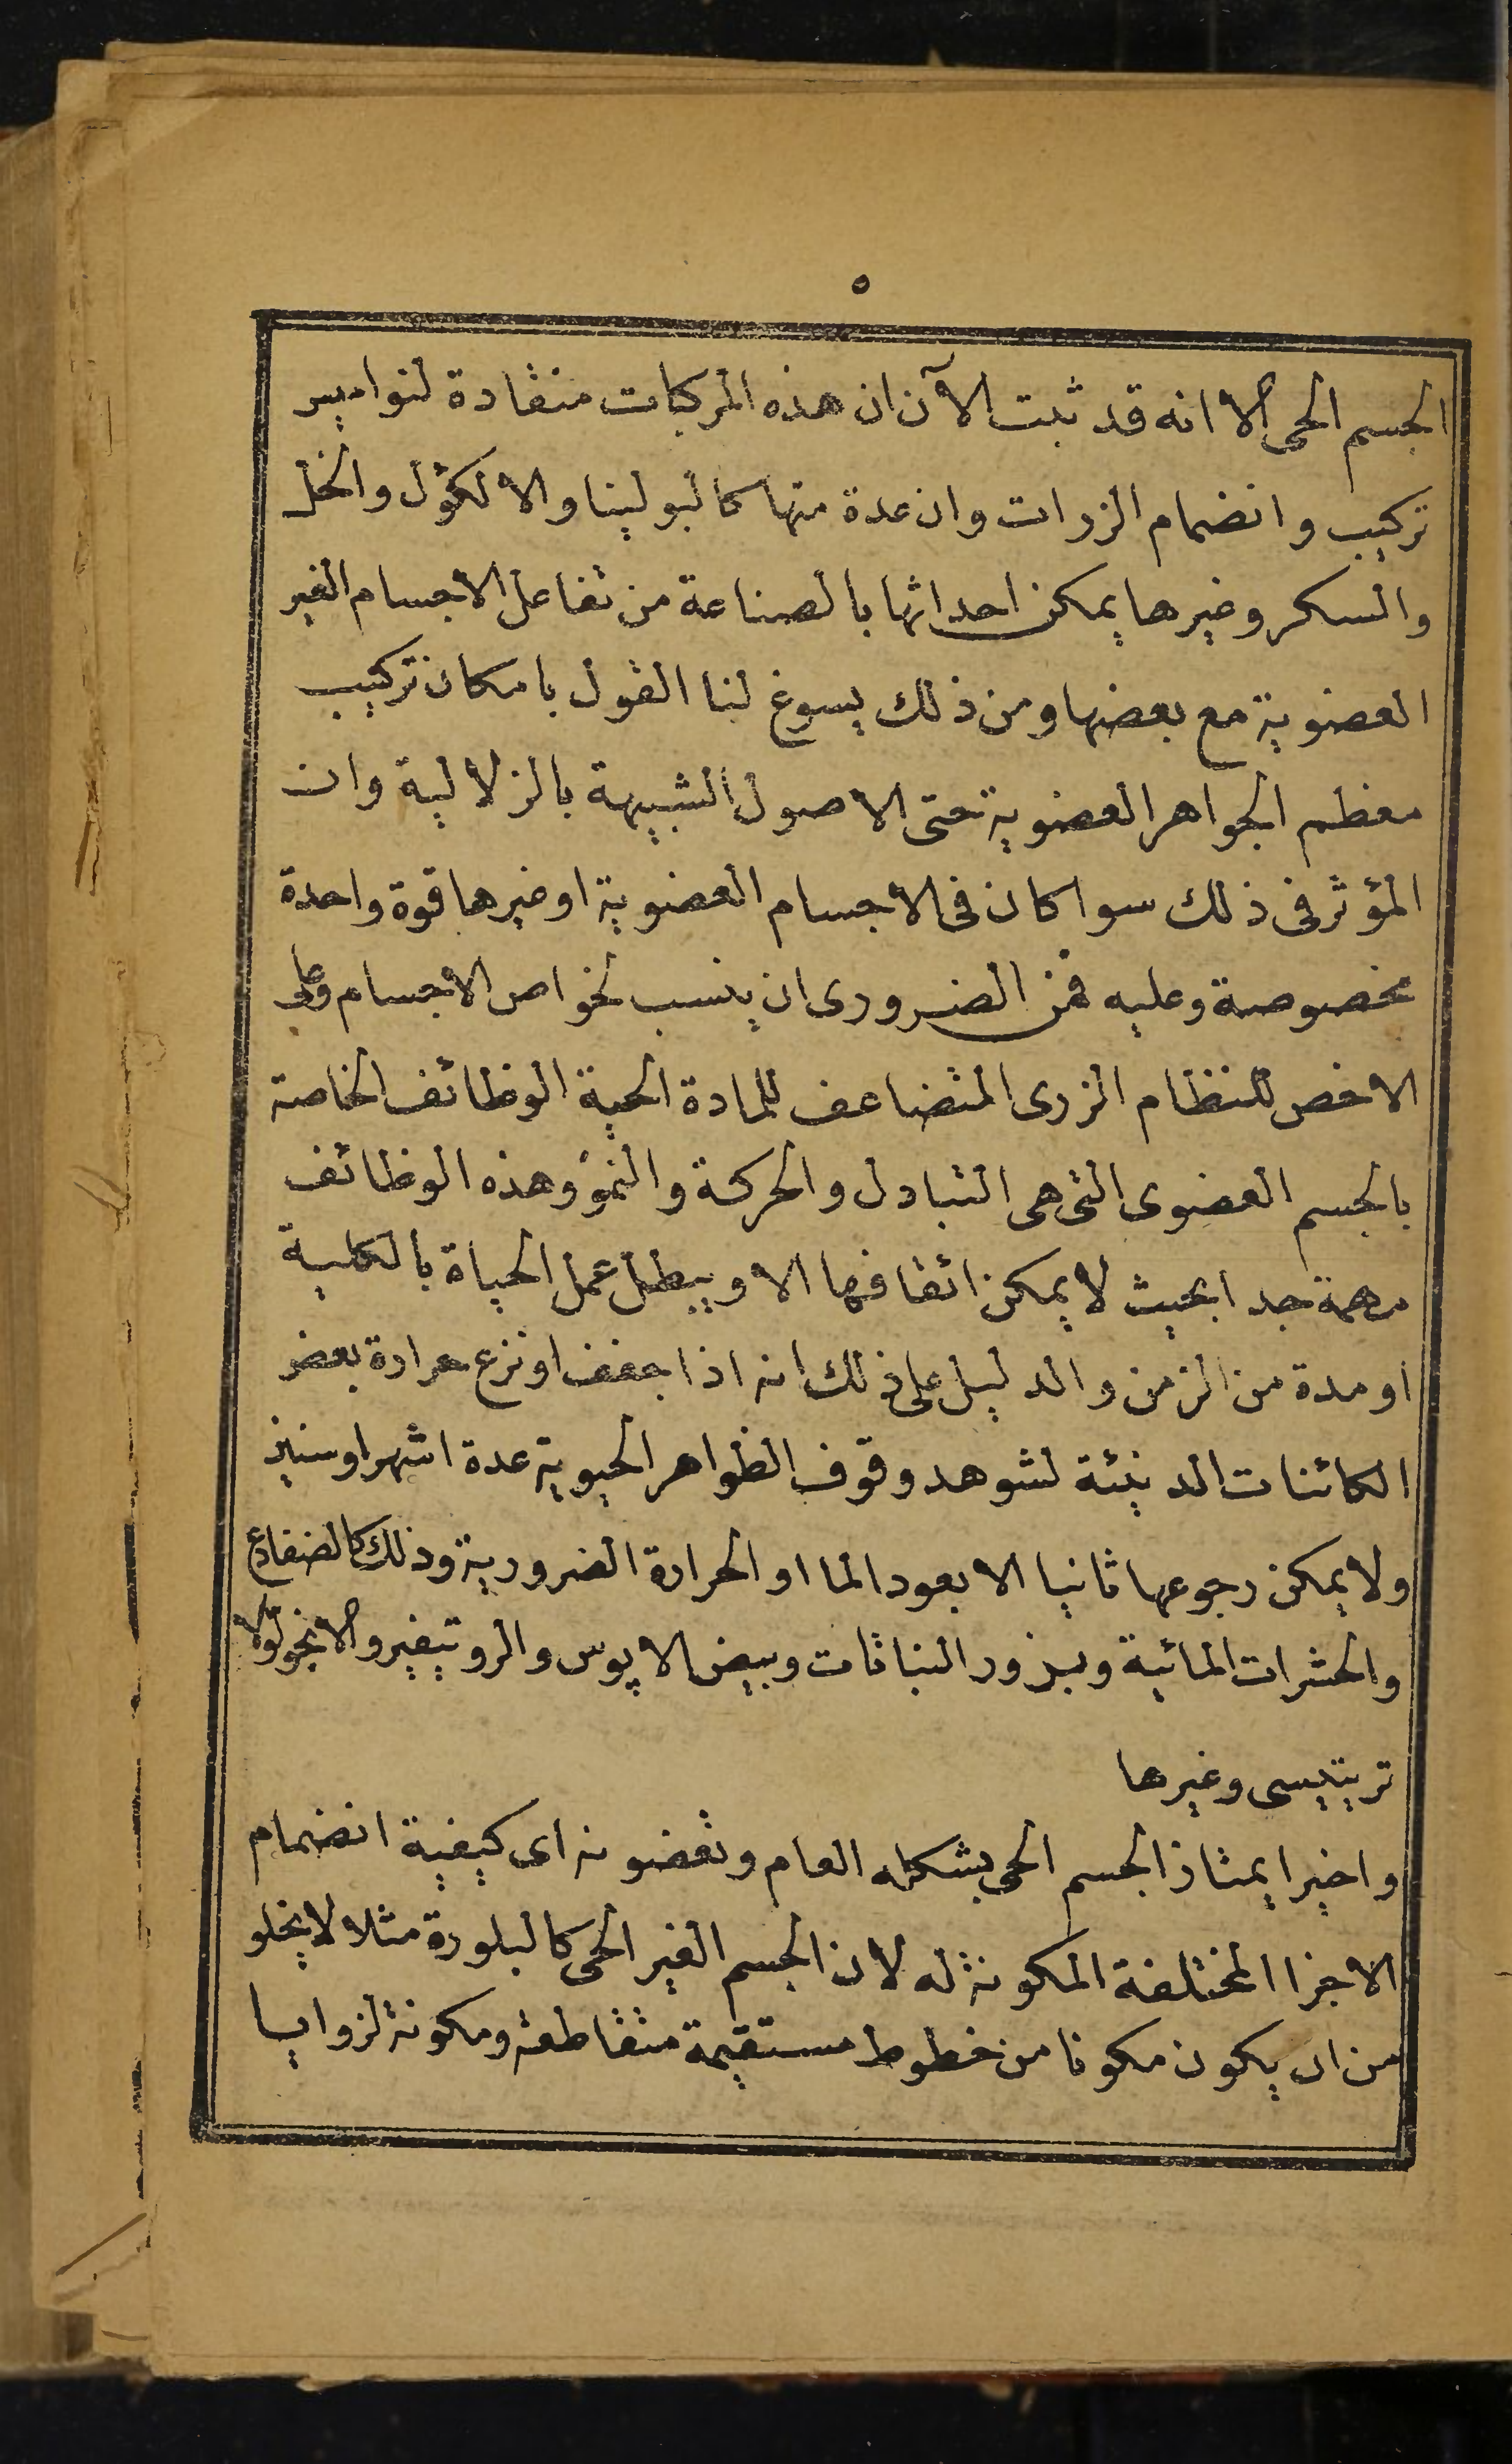 ٥
الجسم الحى الا انه قد ثبت الآن ان هذه المركبات منقادة لنواميس
تركيب وانضمام الزرات وان عدة منها كالبولينا والالكؤل والخل
والسكر وغيرها يمكن احداثها بالصناعة من تفاعل الاجسام الغير
العضوية مع بعضها ومن ذلك يسوغ لنا القول بامكان تركيب
معظم الجواهر العضوية حتى الاصول الشبيهة بالزلالية وان
المؤثر فى ذلك سوا كان فى الاجسام العضوية او غيرها قوة واحدة
مخصوصة وعليه فمن الضرورى ان ينسب لخواص الاجسام وعلى
الاخص للنظام الزرى المتضاعف للمادة الحية الوظائف الخاصة
بالجسم العضوى التى هى التبادل والحركة والنمو وهذه الوظائف
مهمة جدا بحيث لا يمكن ايقافها الا ويبطل عمل الحياة بالكلية
او مدة من الزمن والدليل على ذلك انه اذا جفف او نزع حرارة بعض
الكائنات الدنيئة لشوهد وقوف الظواهر الحيوية عدة اشهر او سنين
ولا يمكن رجوعها ثانيا الا بعود الما او الحرارة الضرورية وذلك كالضفادع
والحشرات المائية وبزور النباتات وبيض الاپوس والروتيفير والانجولولا
تريتيسى وغيرها
واخيرا يمتاز الجسم الحى بشكله العام وتعضونه اى كيفية انضمام
الاجزا المختلفة المكونة له لان الجسم الغير الحى كالبلورة مثلا لا يخلو
من ان يكون مكونا من خطوط مستقيمة متقاطعة ومكونة لزوايا